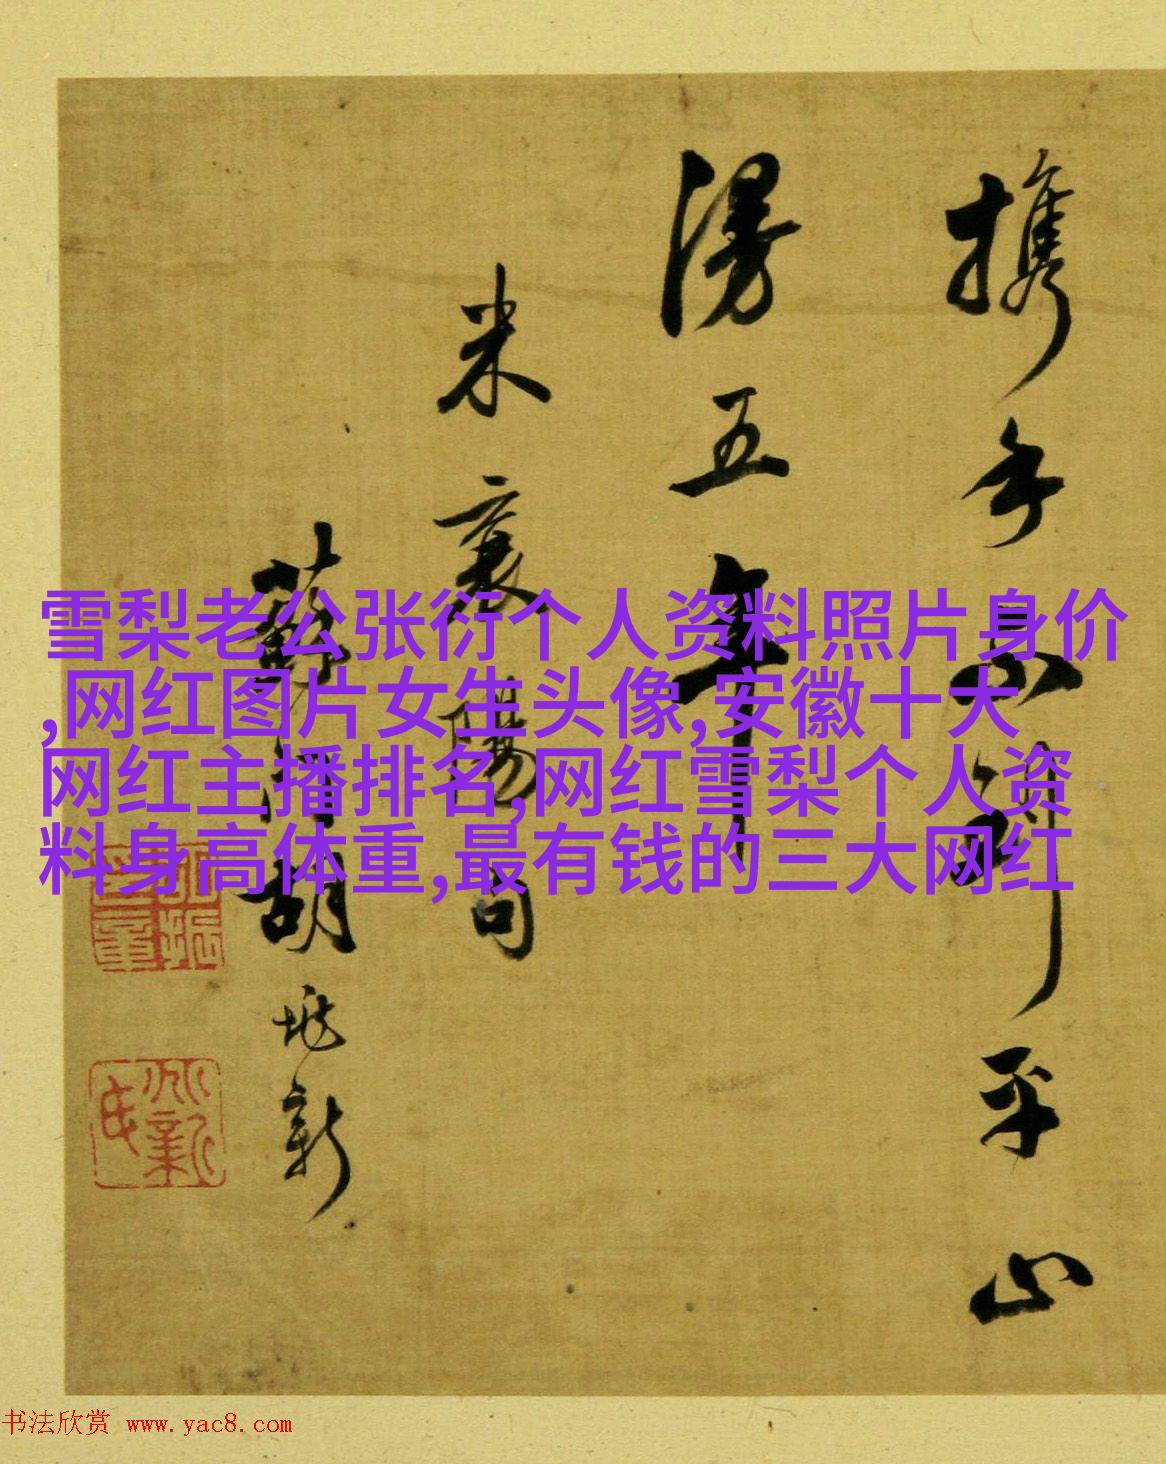 雪梨老公张衍个人资料照片身价
,网红图片女生头像,安徽十大
网红主播排名,网红雪梨个人资
料身高体重,最有钱的三大网红
携手 平山
五年
米襄陽句
蘇 胡 新
书法欣赏 www.yac8.com